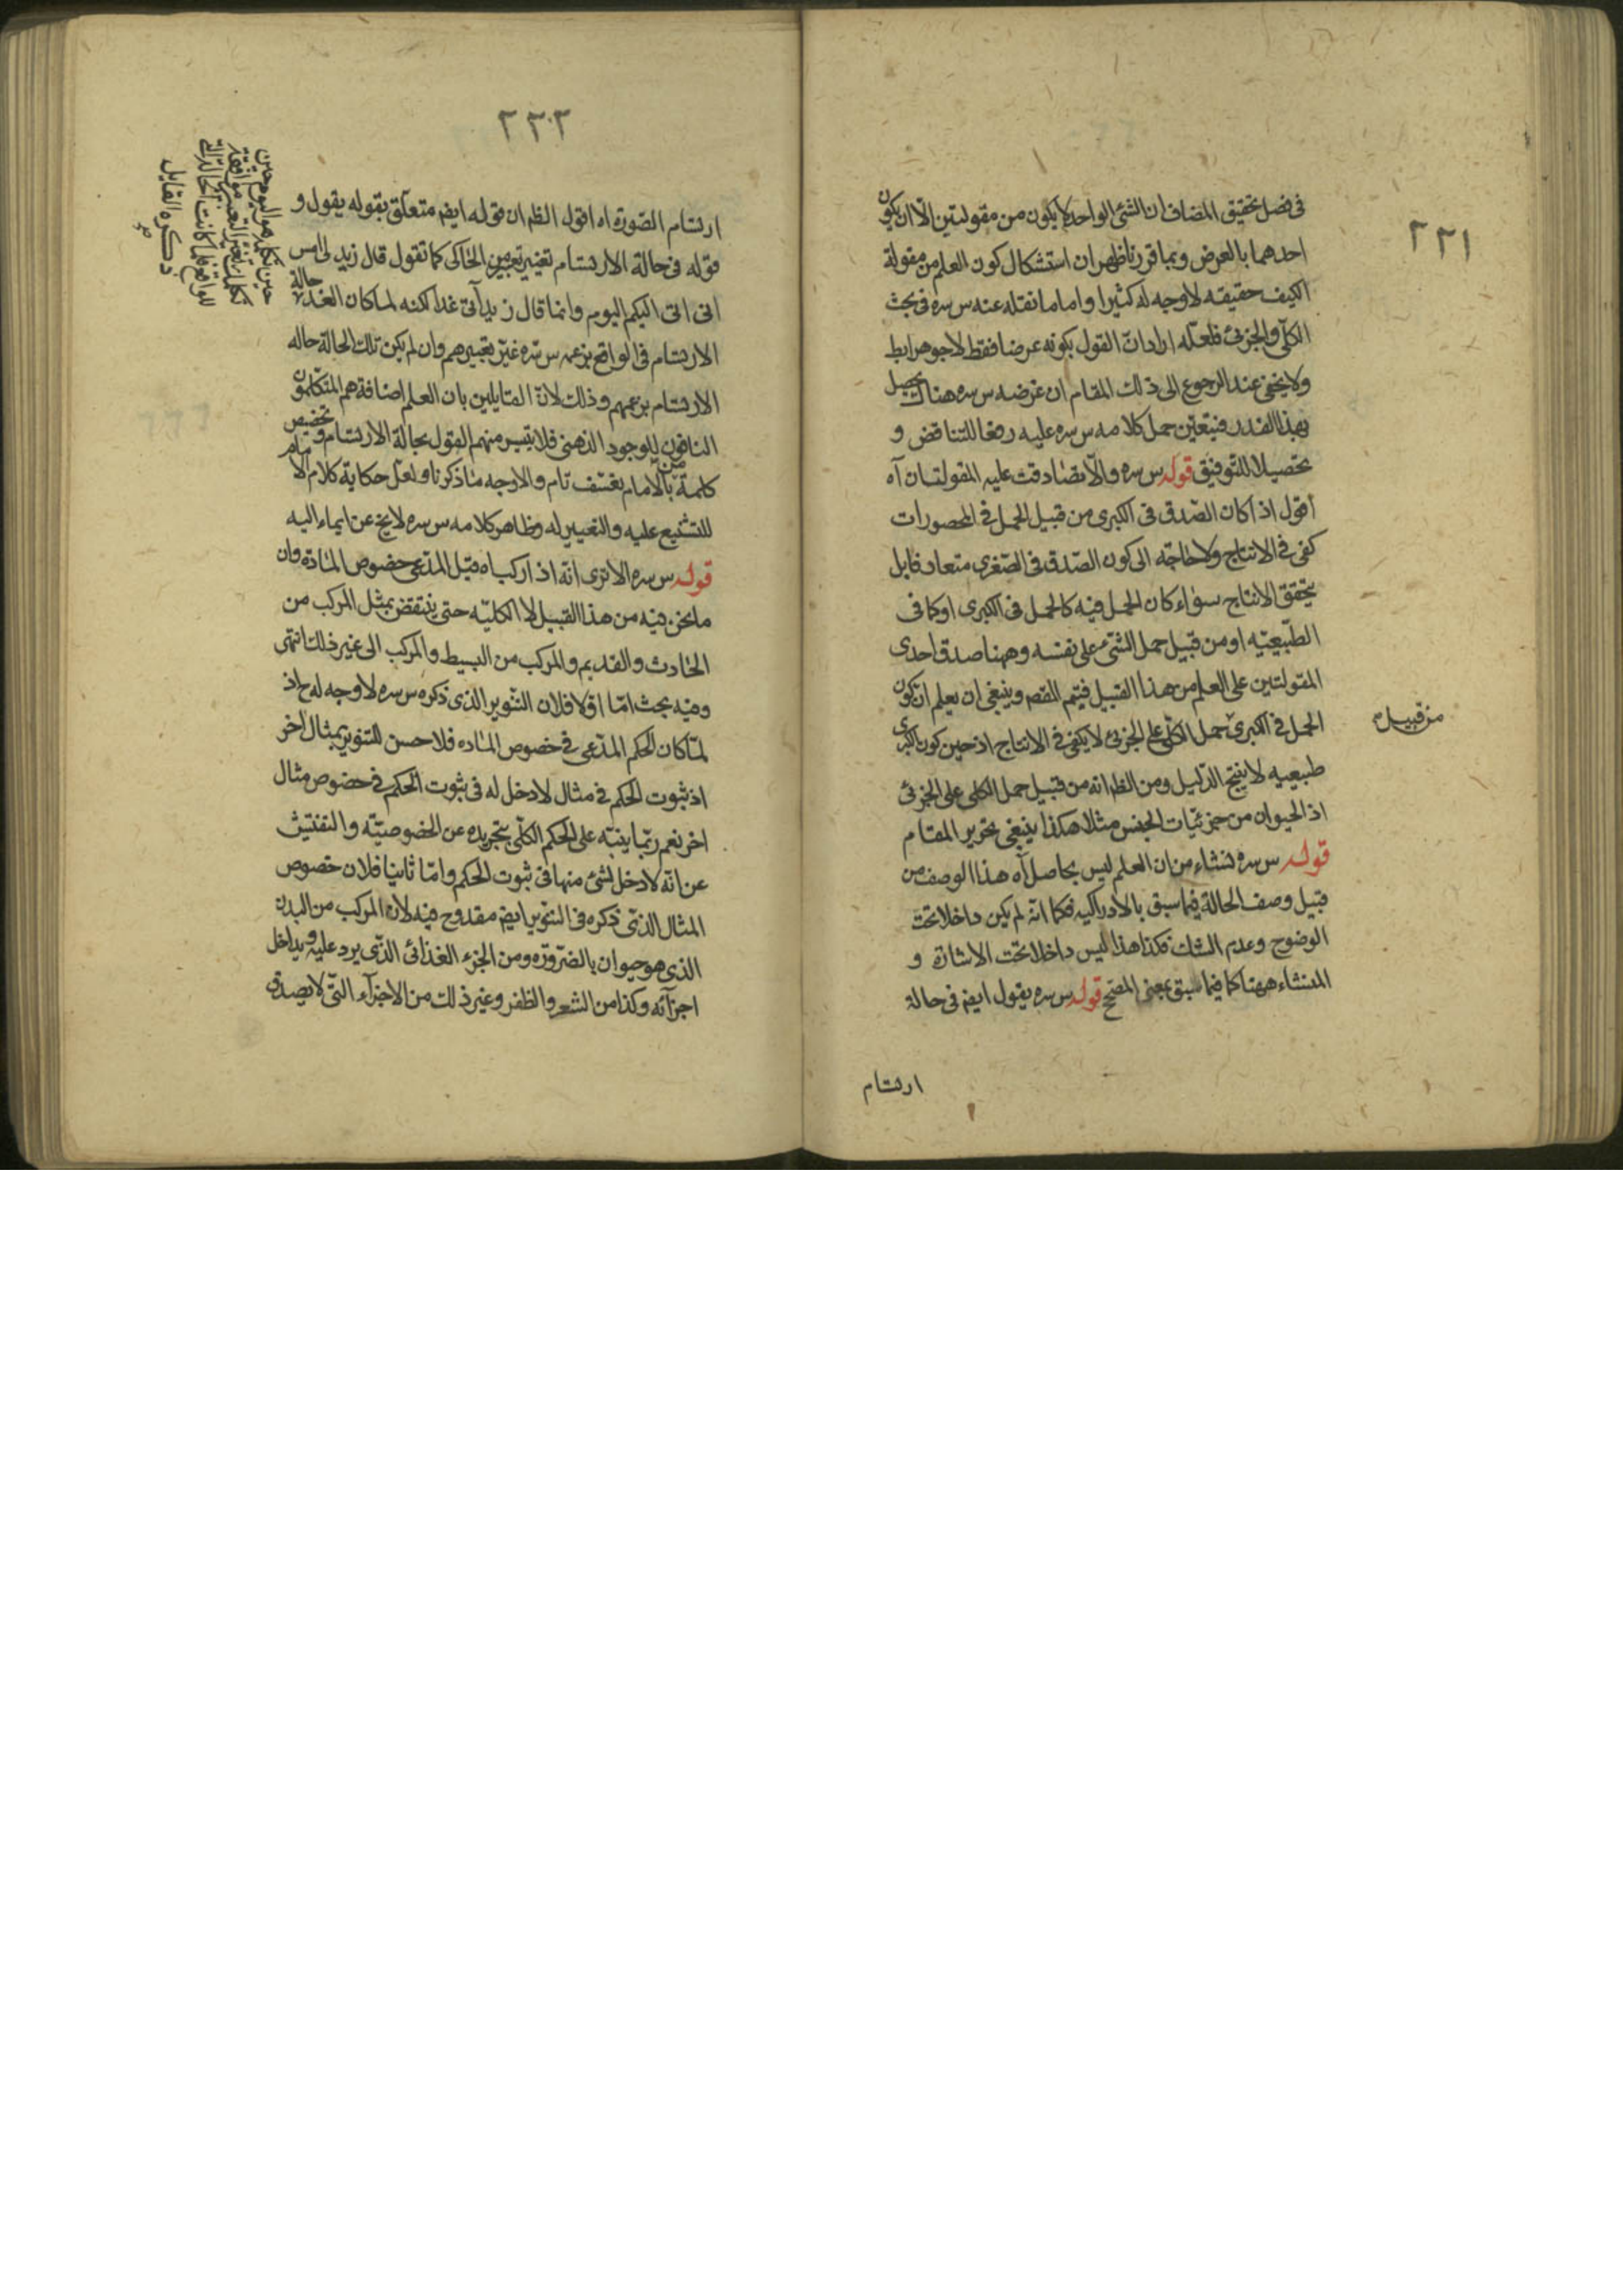 ٢٢١
فى فصل تحقيق المضاف ان الشئ الواحد لا يكون من مقولتين الا ان يكون
احدهما بالعرض وبما قررنا ظهر ان استشكال كون العلم من مقولة
الكيف حقيقه لا وجه له كثيرا واما ما نقله عنه س سره فى بحث
الكلّى والجزئ فلعلّه اراد انّ القول بكونه عرضا فقط لا جوهرا
ولا يخفى عند الرجوع الى ذلك المقام ان غرضه س سره هناك يحصل
بهذا القدر فيتعيّن حمل كلامه س سره عليه رفعا للتناقض و
تحصيلا للتوفيق قوله س سره والّا تصادقت عليه المقولتان آه
اقول اذا كان الصّدق فى الكبرى من قبيل الحمل فى المحصورات
كفى فى الانتاج ولا حاجة الى كون الصّدق فى الصّغرى متعارفا بل
يتحقق الانتاج سواء كان الحمل فيه كالحمل فى الكبرى او كما فى
الطّبيعيّه او من قبيل حمل الشئ على نفسه وههنا صدق احدى
المقولتين على العلم من هذا القبيل فيتم النقص وينبغى ان يعلم ان كون
الحمل فى الكبرى حمل الكلّى على الجزئ لا يكفى فى الانتاج اذ حين كون الكبرى
من قبيل
طبيعيه لا ينتج الدّليل ومن الظ انه من قبيل حمل الكلى على الجزئى
اذ الحيوان من جزئيّات الجنس مثلا هكذا ينبغى تحرير المقام
قوله س سره فنشاء من ان العلم ليس بحاصل آه هذا الوصف من
قبيل وصف الحالة فيما سبق بالادراكيه فكما انّه لم يكن داخلا تحت
الوضوح وعدم الشك فكذا هذا ليس داخلا تحت الاشارة و
المنشاء ههنا كما فيما سبق بمعنى المصحح قوله س سره يقول ايضا فى حالة
ارتسام
٢٢٢
ارتسام الصّورة اه اقول الظ ان قوله ايضا متعلّق بقوله يقول و
قوله فى حالة الارتسام تغيير تعبير من الحاكى كما تقول قال زيد لى امس
انى اتى اليكم اليوم وانما قال زيد آتى غدا لكنه لما كان الغد حالة
الارتسام فى الواقع بزعمه س سره غيّر تعبيرهم وان لم يكن تلك الحالة حاله
الارتسام بزعمهم وذلك لانّ القايلين بان العلم اضافة هم المتكلّمون
النافون للوجود الذهنى فلا يتيسر منهم القول بحالة الارتسام وتخصيص
كلمة من بالامام تعسّف تام والاوجه ما ذكرنا ولعل حكاية كلام الامام
للتشنيع عليه والتعيير له وظاهر كلامه س سره لا يخ عن ايماء اليه
قوله س سره الا ترى انّه اذا ركب اه قيل المدّعى خصوص المادّه وان
ما نحن فيه من هذا القبيل لا الكليّه حتى ينتقض بمثل المركب من
الحادث والقديم والمركب من البسيط والمركب الى غير ذلك انتهى
وفيه بحث امّا اوّلا فلان التنوير الذى ذكره س سره لا وجه له ح اذ
لمّا كان الحكم المدّعى فى خصوص المادّه فلا حسن للتنوير بمثال اخر
اذ ثبوت الحكم فى مثال لا دخل له فى ثبوت الحكم فى خصوص مثال
اخر نعم ربّما ينبّه على الحكم الكلّى بتجريده عن الخصوصيّة والتفتيش
عن انّه لا دخل لشئ منها فى ثبوت الحكم وامّا ثانيا فلان خصوص
المثال الذّى ذكره فى التنوير ايضا مقدوح فيه لان المركب من البدن
الذى هو حيوان بالضّروره ومن الجزء الغذائى الذّى يرد عليه ويداخل
اجزآئه وكذا من الشعر والظفر وغير ذلك من الاجزآء التّى لا يصدق
ذكره القايل